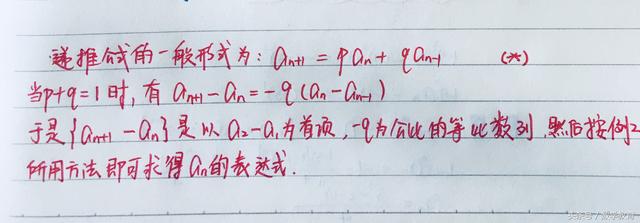 递推公式的一般形式为: aₙ₊₁ = paₙ + qaₙ₋₁ (*)
当p+q=1时, 有 aₙ₊₁-aₙ=-q(aₙ-aₙ₋₁)
于是{aₙ₊₁-aₙ}是以a₂-a₁为首项, -q为公比的等比数列, 然后按例2
所用方法即可求得aₙ的表达式.